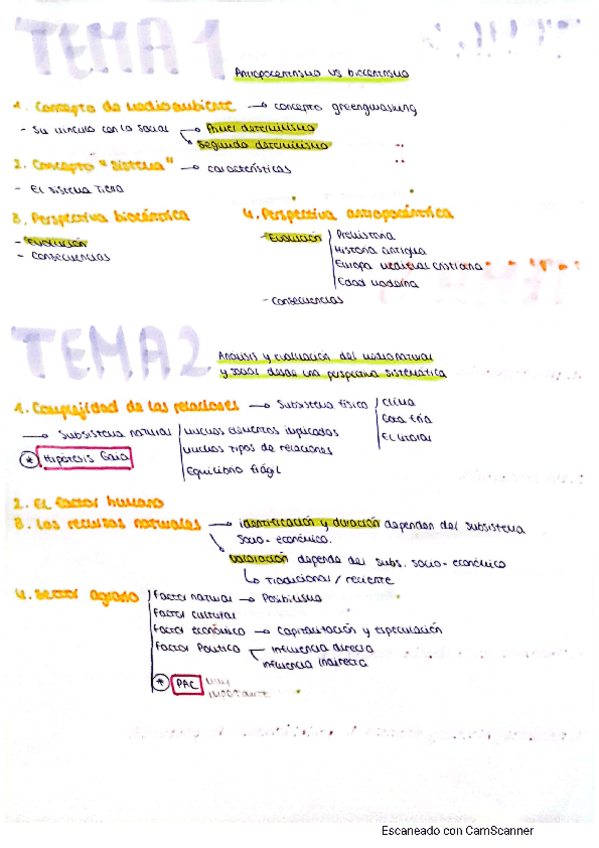 TEMA 1
Antropocentrismo vs biocentrismo
1. Concepto de medioambiente → concepto greengwasiung
- Su vínculo con lo social → Primer determinismo
→ Segundo determinismo
2. Concepto "sistema" → características
- El sistema Tierra
3. Perspectiva biocéntrica
- Evolución
- Consecuencias
4. Perspectiva antropocéntrica
- Evolución
Prehistoria
Historia antigua
Europa medieval cristiana
Edad moderna
- Consecuencias
TEMA 2
Análisis y evaluación del medio natural
y social desde una perspectiva sistemática
1. Complejidad de las relaciones → Subsistema físico
Clima
Gota fría
El litoral
→ Subsistema natural
Muchos elementos implicados
Muchos tipos de relaciones
Equilibrio frágil
* Hipótesis Gaia
2. El factor humano
3. Los recursos naturales → identificación y duración dependen del subsistema
socio-económico.
→ valoración depende del subs. socio-económico
↳ tradicional / reciente
4. Sector agrario
Factor natural → Posibilismo
Factor cultural
Factor económico → Capitalización y especulación
Factor Político
influencia directa
influencia indirecta
* PAC muy
importante
Escaneado con CamScanner